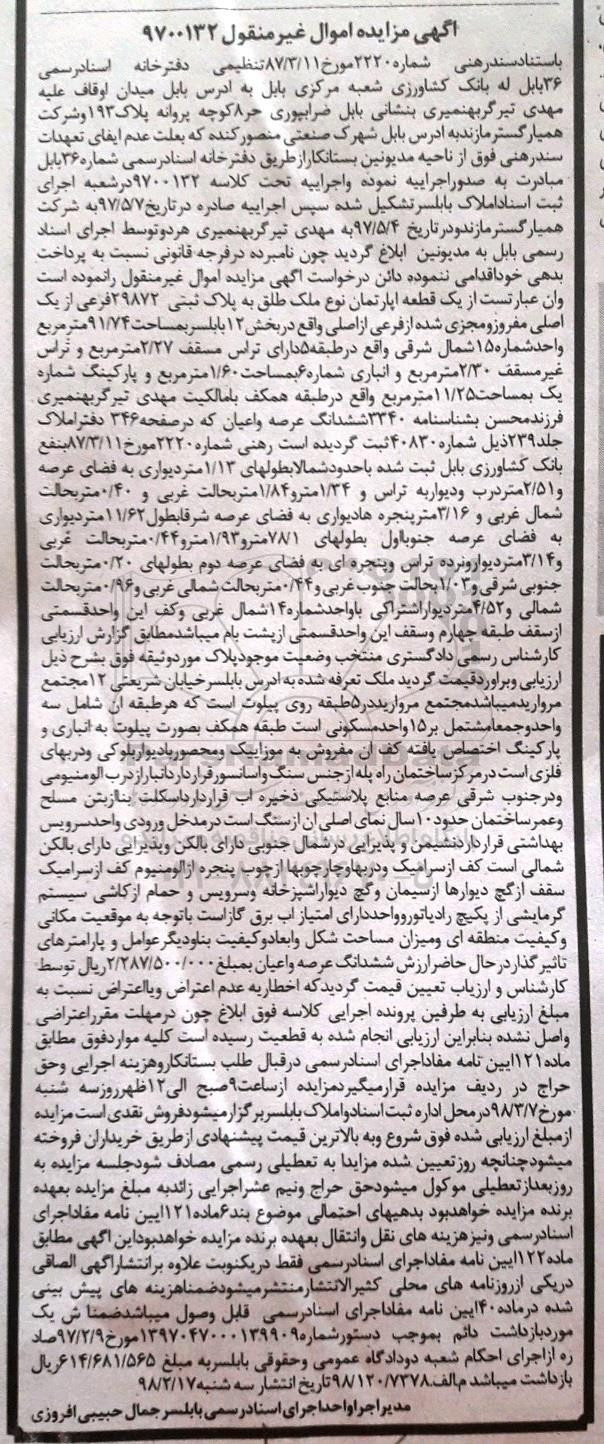 آگهی مزایده اموال غیرمنقول ۹۷۰۰۱۳۲
باستنادسندرهنی شماره۲۲۲۰مورخ۸۷/۳/۱۱تنظیمی دفترخانه اسنادرسمی
۳۶بابل له بانک کشاورزی شعبه مرکزی بابل به ادرس بابل میدان اوقاف علیه
مهدی تیرگربهنمیری بنشانی بابل ضرابپوری حر۸کوچه پروانه پلاک۱۹۳وشرکت
همیارگسترمازندبه ادرس بابل شهرک صنعتی منصورکنده که بعلت عدم ایفای تعهدات
سندرهنی فوق از ناحیه مدیونین بستانکارازطریق دفترخانه اسنادرسمی شماره۳۶بابل
مبادرت به صدوراجراییه نموده واجراییه تحت کلاسه ۹۷۰۰۱۳۲درشعبه اجرای
ثبت اسنادواملاک بابلسرتشکیل شده سپس اجراییه صادره درتاریخ۹۷/۵/۷به شرکت
همیارگسترمازندودرتاریخ ۹۷/۵/۴به مهدی تیرگربهنمیری هردوتوسط اجرای اسناد
رسمی بابل به مدیونین ابلاغ گردید چون نامبرده درفرجه قانونی نسبت به پرداخت
بدهی خوداقدامی ننموده دائن درخواست آگهی مزایده اموال غیرمنقول رانموده است
وان عبارتست از یک قطعه اپارتمان نوع ملک طلق به پلاک ثبتی ۲۹۸۷۲فرعی از یک
اصلی مفروزومجزی شده ازفرعی ازاصلی واقع دربخش۱۲بابلسربمساحت۹۱/۷۴مترمربع
واحدشماره۱۵شمال شرقی واقع درطبقه۵دارای تراس مسقف ۲/۲۷مترمربع و تراس
غیرمسقف ۲/۳۰مترمربع و انباری شماره۶بمساحت۱/۶۰مترمربع و پارکینگ شماره
یک بمساحت۱۱/۲۵مترمربع واقع درطبقه همکف بامالکیت مهدی تیرگربهنمیری
فرزندمحسن بشناسنامه ۳۳۴۰ششدانگ عرصه واعیان که درصفحه۳۴۶ دفتراملاک
جلد۲۳۹ذیل شماره۴۰۸۳۰ثبت گردیده است رهنی شماره۲۲۲۰مورخ۸۷/۳/۱۱بنفع
بانک کشاورزی بابل ثبت شده باحدودشمالابطولهای ۱/۱۳متردیواری به فضای عرصه
و۲/۵۱متردرب ودیواربه تراس و ۱/۳۴مترو۱/۸۴متربحالت غربی و ۰/۴۰متربحالت
شمال غربی و ۳/۱۶مترپنجره هادیواری به فضای عرصه شرقابطول۱۱/۶۲متردیواری
به فضای عرصه جنوبااول بطولهای ۷۸/۱مترو۱/۹۳مترو۰/۴۴متربحالت غربی
و۳/۱۴متردیوارونرده تراس وپنجره ای به فضای عرصه دوم بطولهای ۰/۲۰متربحالت
جنوبی شرقی و۱/۰۳بحالت جنوب غربی و۰/۴۴متربحالت شمالی غربی و۰/۹۶متربحالت
شمالی و۴/۵۲متردیواراشتراکی باواحدشماره۱۴شمال غربی وکف این واحدقسمتی
ازسقف طبقه چهارم وسقف این واحدقسمتی ازپشت بام میباشدمطابق گزارش ارزیابی
کارشناس رسمی دادگستری منتخب وضعیت موجودپلاک موردوثیقه فوق بشرح ذیل
ارزیابی وبراوردقیمت گردید ملک تعرفه شده به ادرس بابلسرخیابان شریعتی ۱۲مجتمع
مرواریدمیباشدمجتمع مرواریددر۵طبقه روی پیلوت است که هرطبقه ان شامل سه
واحدوجمعامشتمل بر۱۵واحدمسکونی است طبقه همکف بصورت پیلوت به انباری و
پارکینگ اختصاص یافته کف ان مفروش به موزاییک ومحصوربادیواربلوکی ودربهای
فلزی است درمرکزساختمان راه پله ازجنس سنگ واسانسورقرارداردانبارازدرب الومنیومی
ودرجنوب شرقی عرصه منابع پلاستیکی ذخیره اب قرارداردِاسکلت بناازبتن مسلح
وعمرساختمان حدود۱۰سال نمای اصلی ان ازسنگ است درمدخل ورودی واحدسرویس
بهداشتی قرارداردنشیمن و پذیرایی درشمال جنوبی دارای بالکن وپذیرایی دارای بالکن
شمالی است کف ازسرامیک ودربهاوچارچوبها ازچوب پنجره ازالومنیوم کف ازسرامیک
سقف ازگچ دیوارها ازسیمان وگچ دیواراشپزخانه وسرویس و حمام ازکاشی سیستم
گرمایشی از پکیچ رادیاتوروواحددارای امتیاز اب برق گازاست باتوجه به موقعیت مکانی
وکیفیت منطقه ای ومیزان مساحت شکل وابعادوکیفیت بناودیگرعوامل و پارامترهای
تاثیرگذاردرحال حاضرارزش ششدانگ عرصه واعیان بمبلغ۲/۲۸۷/۵۰۰/۰۰۰ریال توسط
کارشناس و ارزیاب تعیین قیمت گردیدکه اخطاریه عدم اعتراض ویااعتراض نسبت به
مبلغ ارزیابی به طرفین پرونده اجرایی کلاسه فوق ابلاغ چون درمهلت مقرراعتراضی
واصل نشده بنابراین ارزیابی انجام شده به قطعیت رسیده است کلیه مواردفوق مطابق
ماده۱۲۱ایین نامه مفاداجرای اسنادرسمی درقبال طلب بستانکاروهزینه اجرایی وحق
حراج در ردیف مزایده قرارمیگیردمزایده ازساعت۹صبح الی۱۲ظهرروزسه شنبه
مورخ۹۸/۳/۷درمحل اداره ثبت اسنادواملاک بابلسربرگزارمیشودفروش نقدی است مزایده
ازمبلغ ارزیابی شده فوق شروع وبه بالاترین قیمت پیشنهادی ازطریق خریداران فروخته
میشودچنانچه روزتعیین شده مزایدا به تعطیلی رسمی مصادف شودجلسه مزایده به
روزبعدازتعطیلی موکول میشودحق حراج ونیم عشراجرایی زائدبه مبلغ مزایده بعهده
برنده مزایده خواهدبود بدهیهای احتمالی موضوع بند۶ماده۱۲۱ایین نامه مفاداجرای
اسنادرسمی ونیزهزینه های نقل وانتقال بعهده برنده مزایده خواهدبوداین اگهی مطابق
ماده۱۲۲ایین نامه مفاداجرای اسنادرسمی فقط دریکنوبت علاوه برانتشاراگهی الصاقی
دریکی ازروزنامه های محلی کثیرالانتشارمنتشرمیشودضمناهزینه های پیش بینی
شده درماده۴۰ایین نامه مفاداجرای اسنادرسمی قابل وصول میباشدضمنا ش یک
موردبازداشت دائم بموجب دستورشماره۱۳۹۷۰۴۷۰۰۰۱۳۹۹۰۹مورخ۹۷/۲/۹صاد
ره ازاجرای احکام شعبه دودادگاه عمومی وحقوقی بابلسربه مبلغ ۶۱۴/۶۸۱/۵۶۵ریال
بازداشت میباشد م‌الف۹۸/۱۲۰/۷۳۷۸تاریخ انتشار سه شنبه۹۸/۲/۱۷
مدیراجراواحداجرای اسنادرسمی بابلسرجمال حبیبی افروزی